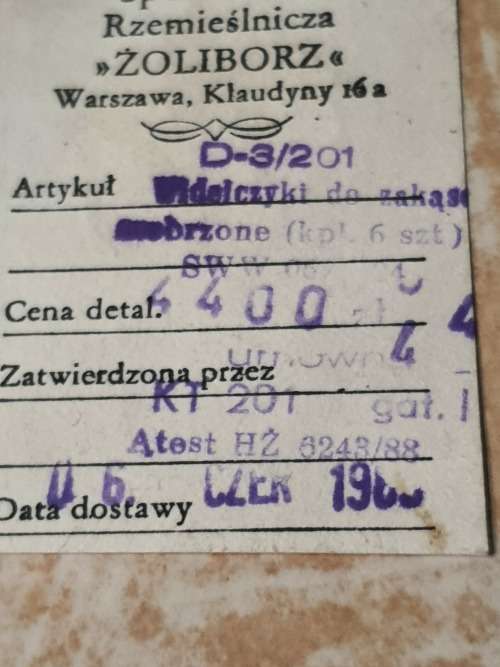 Rzemieślnicza
»ŻOLIBORZ«
Warszawa, Kłaudyny 16a
D-3/201
Artykuł Widelczyki do zakąs
brzone (kpl. 6 szt)
SWW
Cena detal. 4400 zł
Zatwierdzona przez
KT 201 gat. I
Atest HŻ 6243/88
Data dostawy 06. CZER